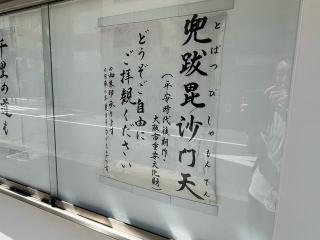 とばつびしゃもんてん
兜跋毘沙門天
(平安時代後期作・
大阪市重要文化財)
どうぞご自由に
ご拝観ください
千里の道も